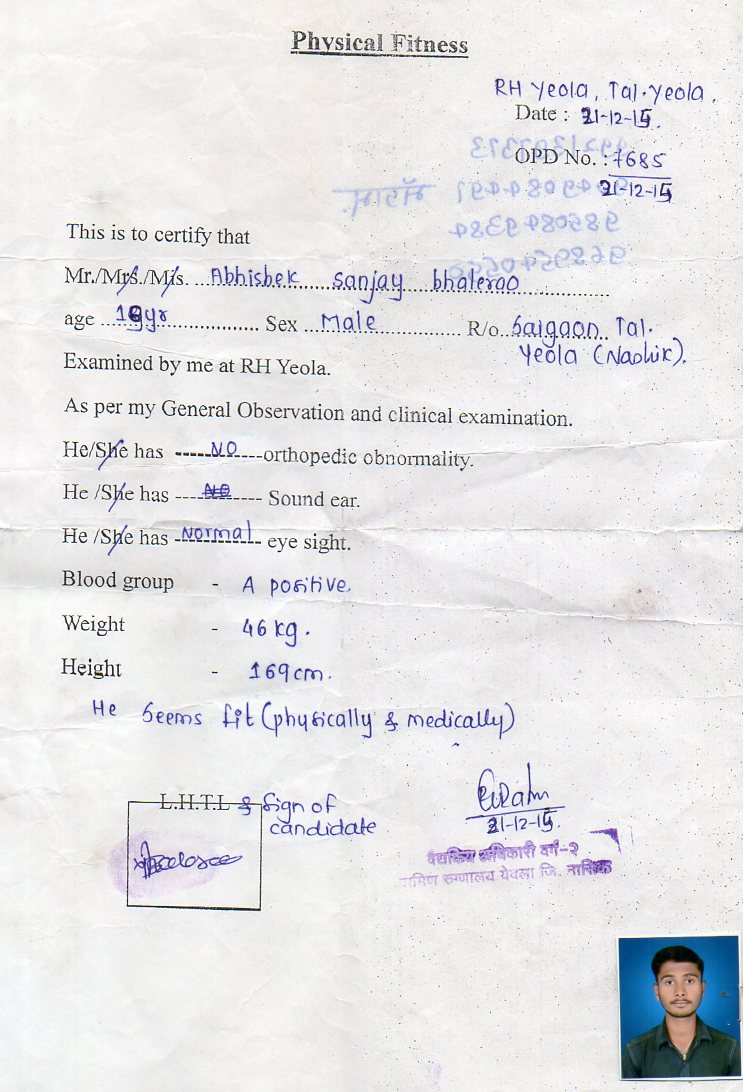 Physical Fitness
RH Yeola, Tal. Yeola.
Date : 21-12-15.
OPD No. : 7685
21-12-15
This is to certify that
Mr./Mrs./Mis. Abhishek Sanjay Bhalerao
age yr Sex Male R/o. Saigaon Tal.
Yeola (Nashik).
Examined by me at RH Yeola.
As per my General Observation and clinical examination.
He/She has -----NO-----orthopedic obnormality.
He /She has ----NO---- Sound ear.
He /She has --Normal-- eye sight.
Blood group - A positive.
Weight - 46 kg.
Height - 169cm.
He seems fit (physically & medically)
L.H.T.I. & Sign of
candidate
21-12-15.
वैद्यकिय अधिकारी वर्ग-२
ग्रामिण रुग्णालय येवला जि. नासिक